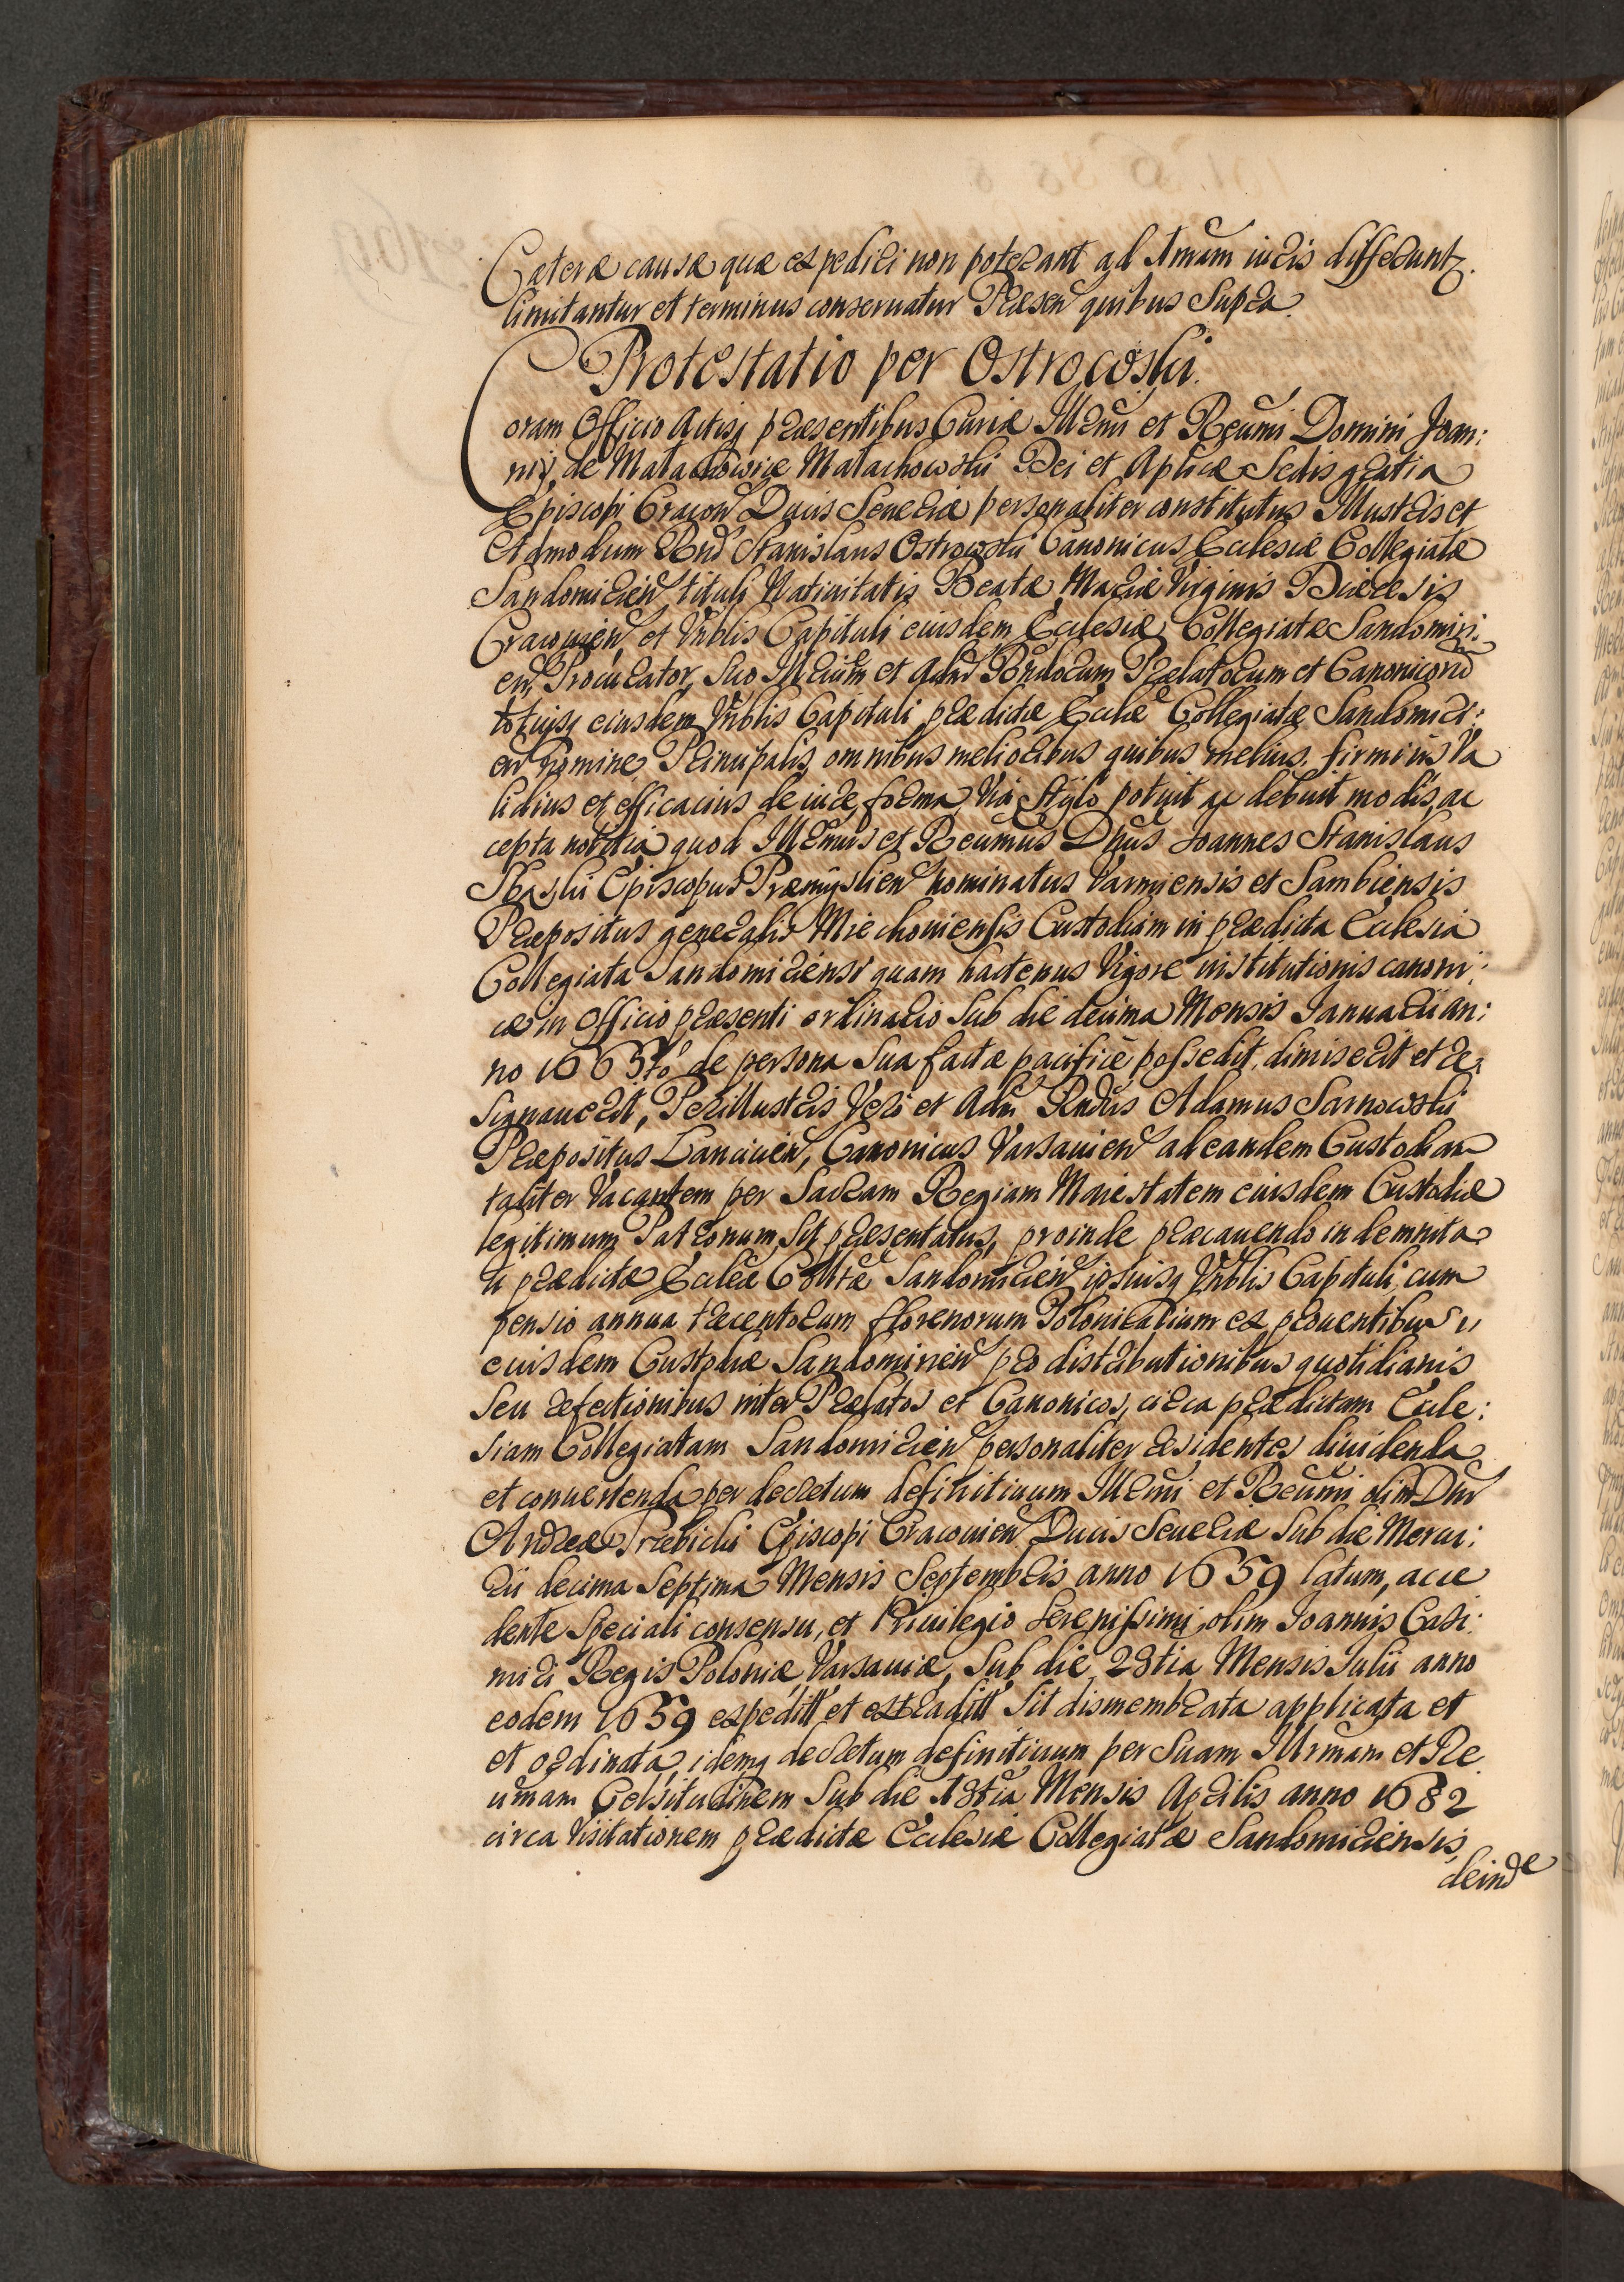 Cæteræ causæ quæ expediri non poterant ad Amum iuris differunt,
limitantur et terminus conseruatur Præsen quibus Supra.
Protestatio per Ostrowski.
Coram Officio Actisq præsentibus Curiæ Illrmi et Reumi Domini Joan:
nis de Małachowice Małachowski Dei et Aplicæ Sedis gratia
Episcopi Cracoui Ducis Seueriæ personaliter constitutus Illustris et
Admodum Rnd Stanislaus Ostrowski Canonicus Ecclesiæ Collegiatæ
Sandomirien tituli Natiuitatis Beatæ Mariæ Virginis Diæcesis
Cracouien et Vnblis Capituli eiusdem Ecclesiæ Collegiatæ Sandomiri:
en Procurator, suo Illrium et Adm Rndorum Prælatorum et Canonicoru
totiusq eiusdem Vnblis Capituli prædictæ Eccliæ Collegiatæ Sandomiri:
en Nomine Principalis, omnibus melioribus quibus melius, firmius Va
lidius et efficacius de iure, forma, Via, Stylo potuit ac debuit modis, ac
cepta notitia quod Illrmus et Reumus Dnus Joannes Stanislaus
Sbąski Episcopus Præmyslien nominatus Varmiensis et Sambiensis
Præpositus generalis Miechouiensis Custodiam in prædicta Ecclesia
Collegiata Sandomiriensi quam hactenus Vigore institutionis canoni:
cæ in Officio præsenti ordinario Sub die decima Mensis Januarii an:
no 1665to de persona Sua factæ pacifice possedit, dimiserit et re:
signauerit, Perillustris Vero et Adm Rndus Adamus Sarnowski
Præpositus Lancicien, Canonicus Varsauien ad eandem Custodiam
taliter Vacantem per Sacram Regiam Maiestatem eiusdem Custodiæ
legitimum Patronum sit præsentatus, proinde præcauendo indemnita
ti prædictæ Eccleæ Colltæ Sandomirien ipsiusq Vnblis Capituli, cum
pensio annua trecentorum florenorum Polonicalium ex prouentibus
eiusdem Custodiæ Sandomirien pro distributionibus quotidianis
seu refectionibus inter Prælatos et Canonicos, circa prædictam Eccle:
siam Collegiatam Sandomirien personaliter residentes diuidenda
et conuertenda per decretum definitiuum Illrmi et Reumi olim Dni
Andreæ Trzebicki Episcopi Cracouien Ducis Seueriæ Sub die Mercu:
rii decima Septima Mensis Septembris anno 1659 latum, acce
dente Speciali consensu, et Priuilegio Serenissimi olim Joannis Casi:
miri Regis Poloniæ, Varsauiæ, Sub die 28tia Mensis Julii anno
eodem 1659 expeditt et extraditt sit dismembrata applicata et
et ordinata, idemq decretum definitiuum per Suam Illrmam et Re
umam Celsitudinem Sub die 18tia Mensis Aprilis anno 1682
circa Visitationem prædictæ Ecclesiæ Collegiatæ Sandomiriensis,
deinde